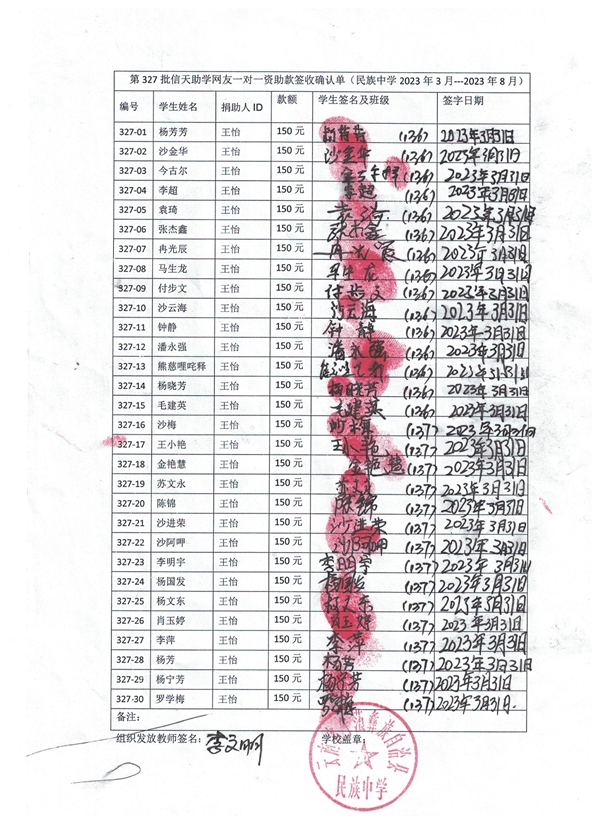 第 327 批信天助学网友一对一资助款签收确认单（民族中学 2023 年 3 月---2023 年 8 月）
编号 学生姓名 捐助人 ID 款额 学生签名及班级 签字日期
327-01 杨芳芳 王怡 150 元 杨芳芳 (136) 2023年3月31日
327-02 沙金华 王怡 150 元 沙金华 (136) 2023年3月31日
327-03 今古尔 王怡 150 元 (136) 2023年3月31日
327-04 李超 王怡 150 元 李超 (136) 2023年3月31日
327-05 袁琦 王怡 150 元 袁琦 (136) 2023年3月31日
327-06 张杰鑫 王怡 150 元 张杰鑫 (136) 2023年3月31日
327-07 冉光辰 王怡 150 元 冉光辰 (136) 2023年3月31日
327-08 马生龙 王怡 150 元 马生龙 (136) 2023年3月31日
327-09 付步文 王怡 150 元 付步文 (136) 2023年3月31日
327-10 沙云海 王怡 150 元 沙云海 (136) 2023年3月31日
327-11 钟静 王怡 150 元 钟静 (136) 2023年3月31日
327-12 潘永强 王怡 150 元 潘永强 (136) 2023年3月31日
327-13 熊慈哩咤释 王怡 150 元 (136) 2023年3月31日
327-14 杨晓芳 王怡 150 元 杨晓芳 (136) 2023年3月31日
327-15 毛建英 王怡 150 元 毛建英 (136) 2023年3月31日
327-16 沙梅 王怡 150 元 沙梅 (137) 2023年3月31日
327-17 王小艳 王怡 150 元 王小艳 (137) 2023年3月31日
327-18 金艳慧 王怡 150 元 金艳慧 (137) 2023年3月31日
327-19 苏文永 王怡 150 元 苏文永 (137) 2023年3月31日
327-20 陈锦 王怡 150 元 陈锦 (137) 2023年3月31日
327-21 沙进荣 王怡 150 元 沙进荣 (137) 2023年3月31日
327-22 沙阿呷 王怡 150 元 沙阿呷 (137) 2023年3月31日
327-23 李明宇 王怡 150 元 李明宇 (137) 2023年3月31日
327-24 杨国发 王怡 150 元 杨国发 (137) 2023年3月31日
327-25 杨文东 王怡 150 元 杨文东 (137) 2023年3月31日
327-26 肖玉婷 王怡 150 元 肖玉婷 (137) 2023年3月31日
327-27 李萍 王怡 150 元 李萍 (137) 2023年3月31日
327-28 杨芳 王怡 150 元 杨芳 (137) 2023年3月31日
327-29 杨宁芳 王怡 150 元 杨宁芳 (137) 2023年3月31日
327-30 罗学梅 王怡 150 元 罗学梅 (137) 2023年3月31日.
备注：
组织发放教师签名：李文明 学校盖章：
族自治县
民族中学